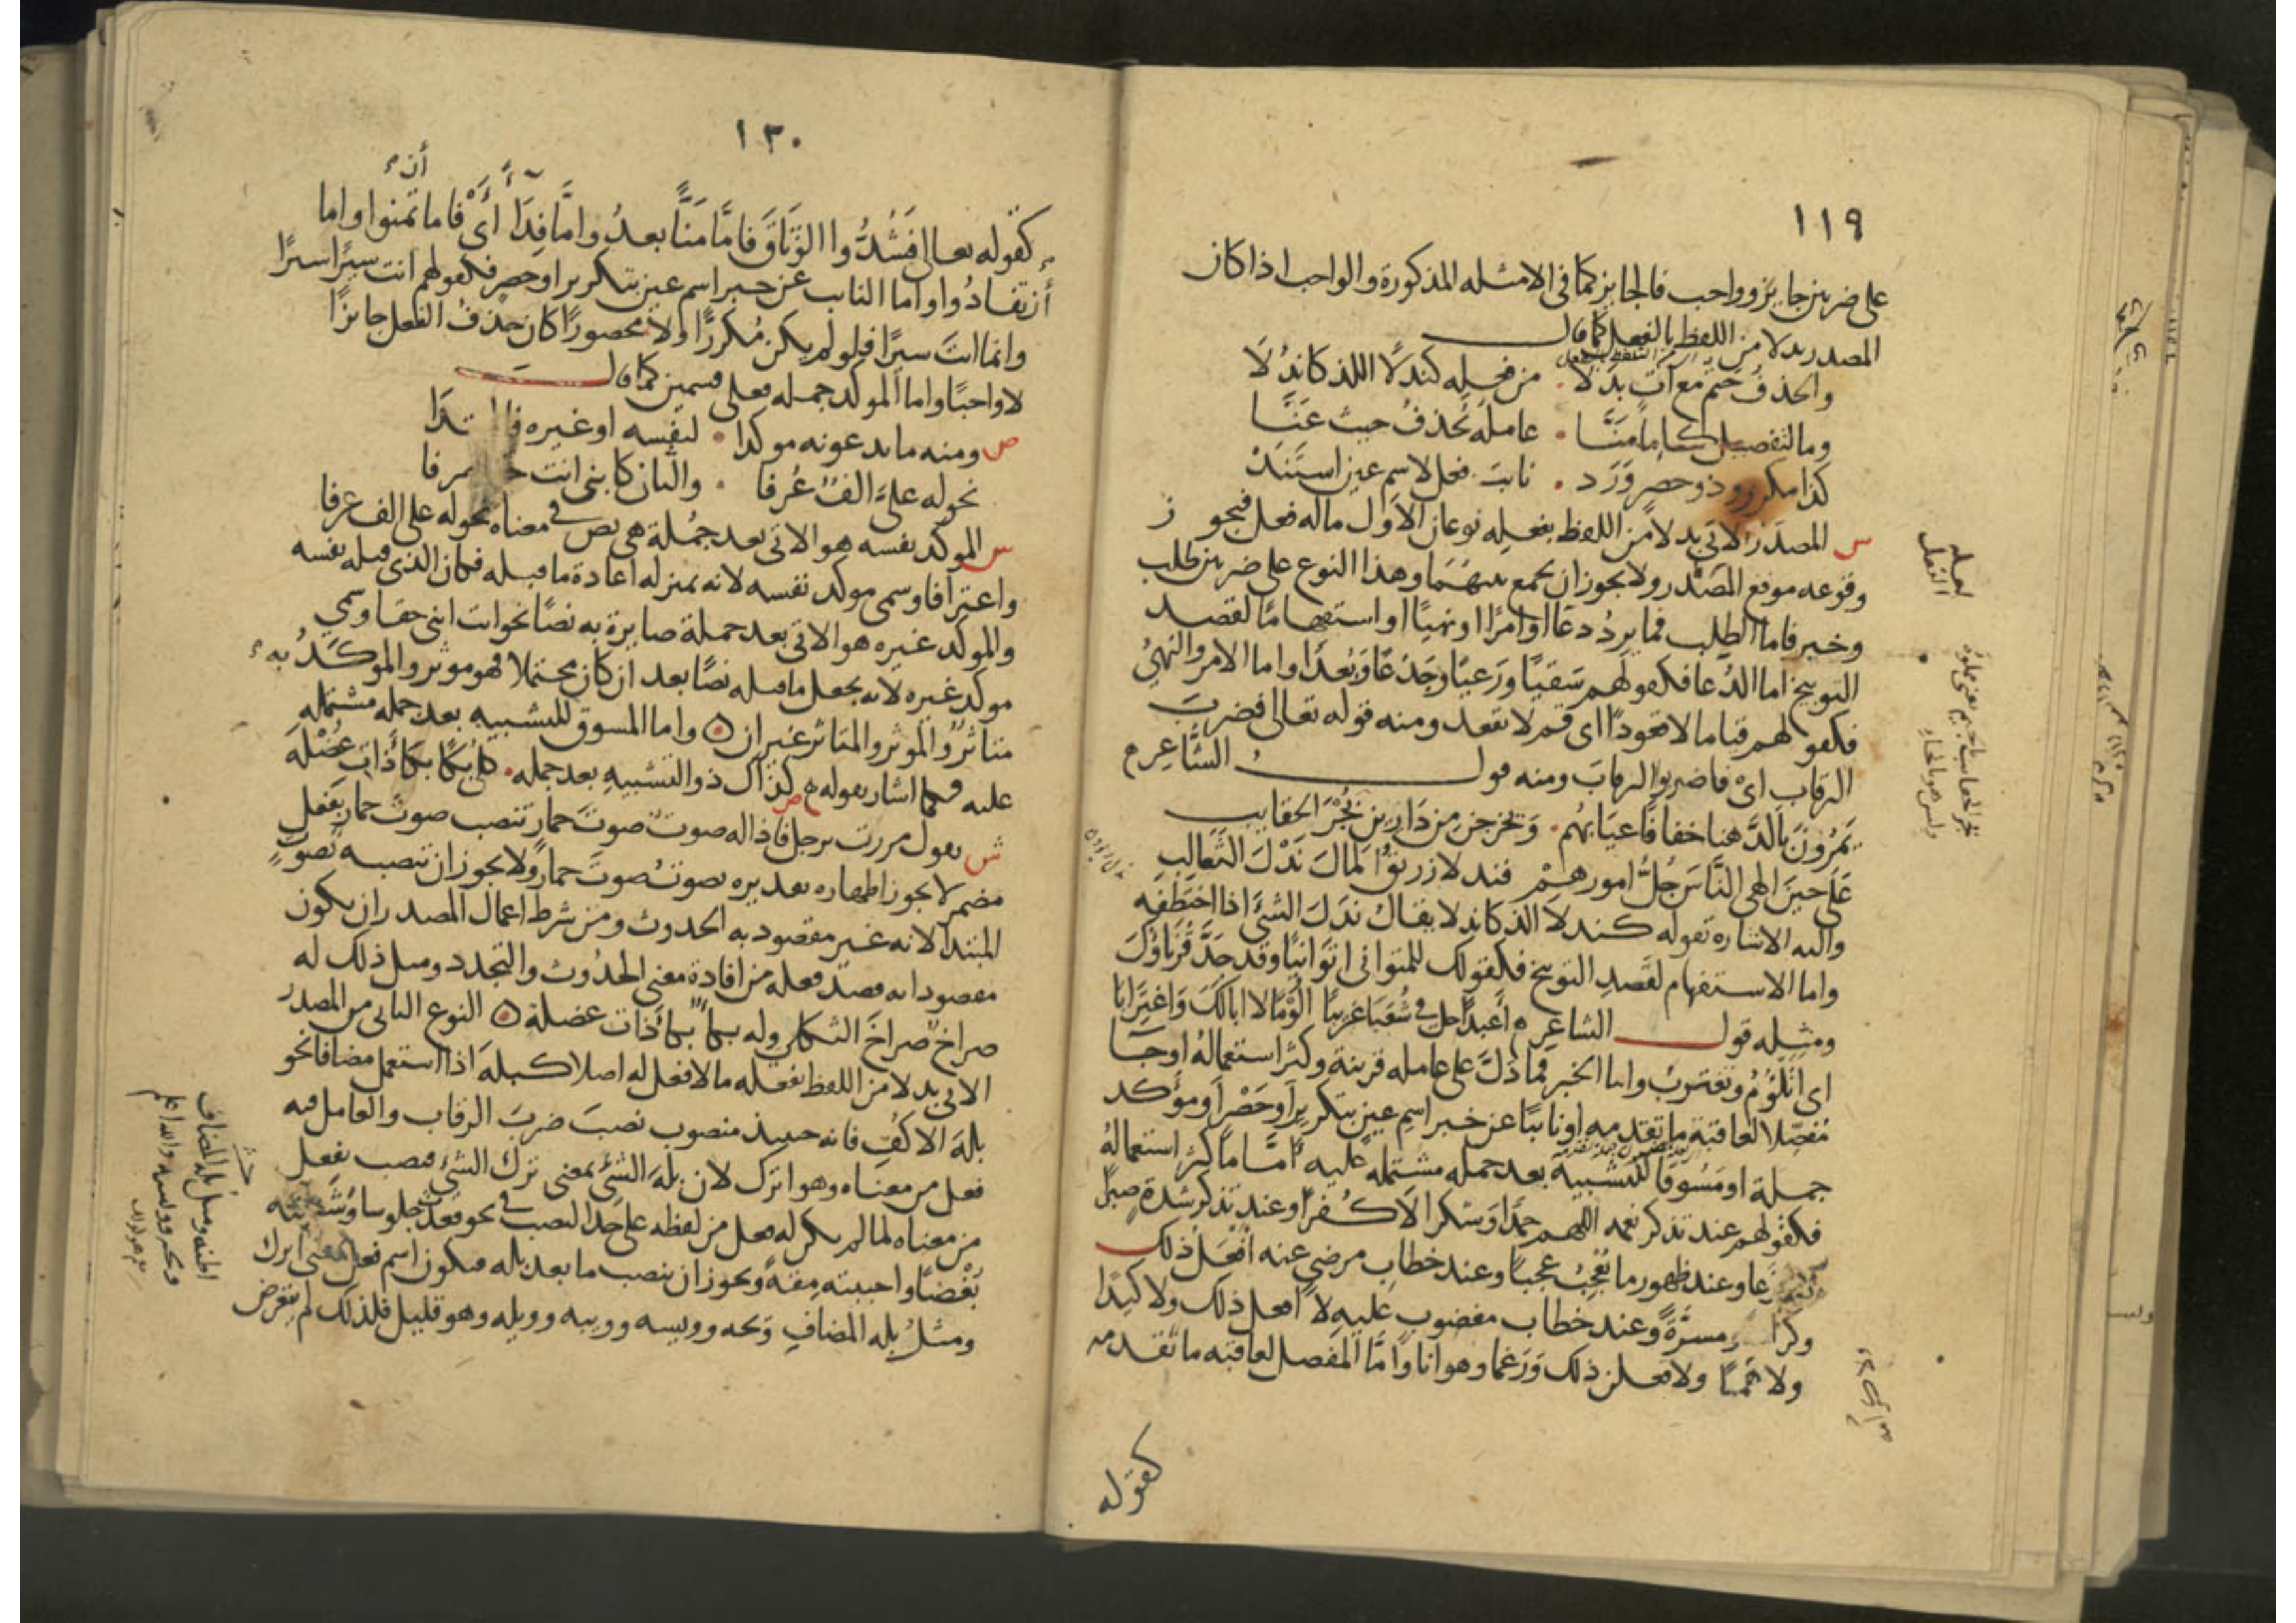 ١١٩
على ضربين جايز وواجب فالجايز كما في الامثله المذكورة والواجب اذا كان
المصدر بدلا من اللفظ بالفعل كما قال
والحذف حتم مع آت بدلا من فعله كندلا اللذ كاندلا
وما لتفصيل كاما منّا عامله يحذف حيث عنّا
كذا مكرر وذو حصر ورد نايب فعل لاسم عين استند
س المصدر الاتي بدلا من اللفظ بفعله نوعان الاول ماله فعل فيجوز
وقوعه موقع المصدر ولا يجوز ان يجمع بينهما وهذا النوع على ضربين طلب
وخبر فاما الطلب فما يرد دعا او امرا او نهيا او استفهاما لقصد
التوبيخ اما الدعا فكقولهم سقيا ورعيا وجدعا وبعدا واما الامر والنهي
فكقولهم قياما لا قعودا اى قم لا تقعد ومنه قوله تعالى فضرب
الرقاب اى فاضربوا الرقاب ومنه قول الشاعر
يمرون بالدهنا خفافا عيابهم وتخرجن من دارين بجر الحقايب
على حين الهى الناس جل امورهم فندلا زريق المال ندل الثعالب
واليه الاشاره بقوله كندلا الذ كاندلا يقال ندل الشئ اذا اختطفه
واما الاستفهام لقصد التوبيخ فكقولك للمتوانى اتوانيا وقد جد قرناؤك
ومثله قول الشاعر أعبدا حل في شعبا غريبا ألؤما لا ابالك واغترابا
اى اتلؤم وتغترب واما الخبر فما دل على عامله قرينة وكثر استعماله او جا
مفصلا لعاقبة ما تقدمه او نايبا عن خبر اسم عين بتكرير او حصر او مؤكد
جملة او مسوقا للتشبيه بعد جمله مشتمله عليه أما ما كثر استعماله
فكقولهم عند تذكر نعمه اللهم حمدا وشكرا لا كفرا وعند تذكر شدة صبرا
لا جزعا وعند ظهور ما يعجب عجبا وعند خطاب مرضي عنه افعل ذلك
وكرامة ومسرة وعند خطاب مغضوب عليه لا افعل ذلك ولا كيدا
ولا هما ولا فعلن ذلك ورغما وهوانا واما المفصل لعاقبه ما تقدمه
كقوله
١٢٠
كقوله تعالى فشدوا الوثاق فاما منّا بعد واما فدا أى فاما تمنوا واما
أن تفادوا واما النايب عن خبر اسم عين بتكرير او حصر فكقولهم انت سيرا سيرا
وانما انت سيرا فلو لم يكن مكررا ولا محصورا كان حذف الفعل جايزا
لا واجبا واما المؤكد جمله فعلى قسمين كما قال
ص ومنه ما يدعونه موكدا لنفسه او غيره فالمبتدا
نحو له على الف عرفا والثان كابنى انت حقا صرفا
س الموكد نفسه هو الاتى بعد جملة هى نص في معناه نحو له على الف عرفا
واعترافا وسمى موكد نفسه لانه بمنزله اعادة ما قبله فكان الذى قبله نفسه
والموكد غيره هو الاتي بعد جملة صايرة به نصا نحو انت ابنى حقا وسمى
موكد غيره لانه يجعل ما قبله نصا بعد ان كان محتملا فهو موثر والموكد به
متاثر والموثر والمتاثر غيران واما المسوق للتشبيه بعد جمله مشتمله
عليه فكما اشار بقوله ص كذاك ذو التشبيه بعد جمله كلى بكا بكأ ذات عضله
ش تقول مررت برجل فاذا له صوت صوت حمار تنصب صوت حمار بفعل
مضمر لا يجوز اظهاره تقديره يصوت صوت حمار ولا يجوز ان تنصبه بصوت
المبتدا لانه غير مقصود به الحدوث ومن شرط اعمال المصدر ان يكون
مقصودا به قصد فعله من افادة معنى الحدوث والتجدد ومثل ذلك له
صراخ صراخ الثكلى وله بكا بكأ ذات عضلة النوع الثاني من المصدر
الاتي بدلا من اللفظ بفعله ما لا فعل له اصلا كبله اذا استعمل مضافا نحو
بله الاكف فانه حينيذ منصوب نصب ضرب الرقاب والعامل فيه
فعل من معناه وهو اترك لان بله الشئ بمعنى ترك الشئ فنصب بفعل
من معناه لما لم يكن له فعل من لفظه على حد النصب في نحو قعدت جلوسا وشنيته
بغضا واحببته مقة ويجوز ان ينصب ما بعد بله فيكون اسم فعل بمعنى اترك
ومثل بله المضاف ويحه وويسه وويبه وويله وهو قليل فلذلك لم يتعرض